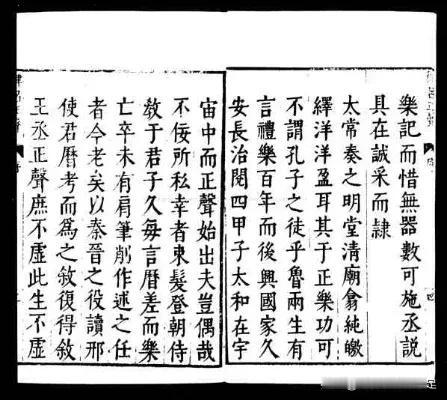 樂記而惜無器數可施丞說
具在誠采而隸
太常奏之明堂清廟翕純皦
繹洋洋盈耳其于正樂功可
不謂孔子之徒乎魯兩生有
言禮樂百年而後興國家久
安長治閱四甲子太和在宇
宙中而正聲始出夫豈偶哉
不佞所私幸者束髮登朝侍
教于君子久每言曆差而樂
亡卒未有肩筆削作述之任
者今老矣以秦晉之役讀邢
使君曆考而爲之敘復得敘
王丞正聲庶不虛此生不虛